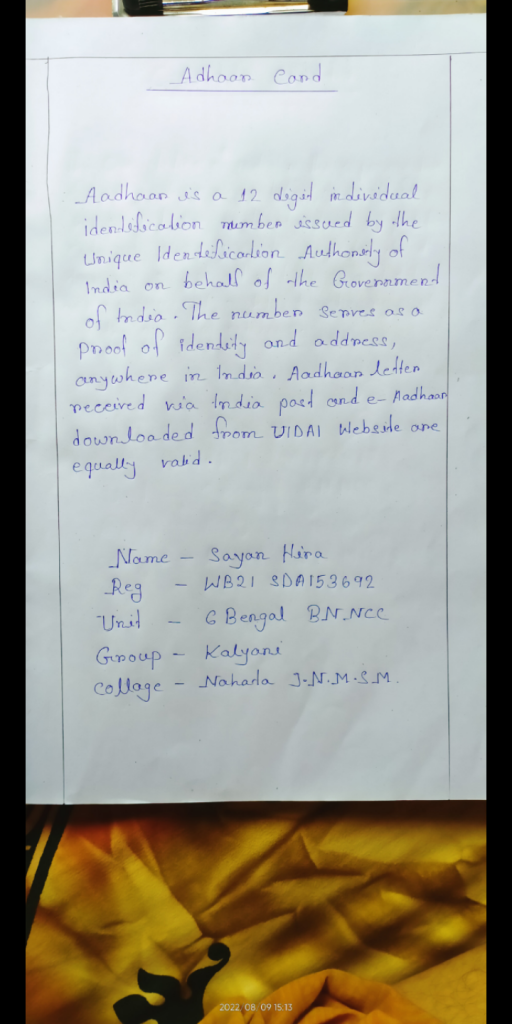 Adhaar Card
Aadhaar is a 12 digit individual
identification number issued by the
Unique Identification Authority of
India on behalf of the Government
of India. The number serves as a
Proof of identity and address,
anywhere in India. Aadhaar letter
received via India post and e-Aadhaar
downloaded from UIDAI Website are
equally valid.
Name - Sayan Hira
Reg - WB21 SDA153692
Unit - 6 Bengal BN.NCC
Group - Kalyani
Collage - Nahata J.N.M.S.M.
2022.08.09 15:13